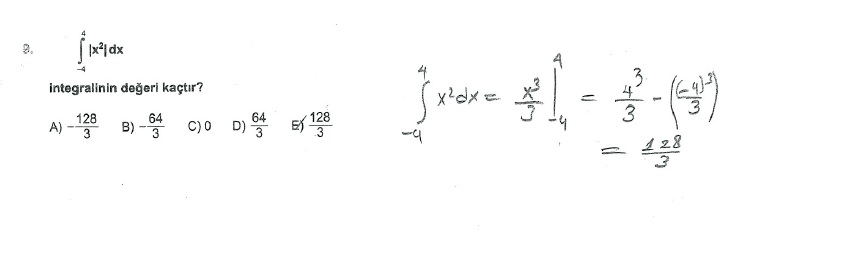 9.
∫₋₄⁴ |x²| dx
integralinin değeri kaçtır?
A) -128/3 B) -64/3 C) 0 D) 64/3 E) 128/3
∫₋₄⁴ x²dx = x³/3 |₋₄⁴ = 4³/3 - ((-4)³/3)
= 128/3